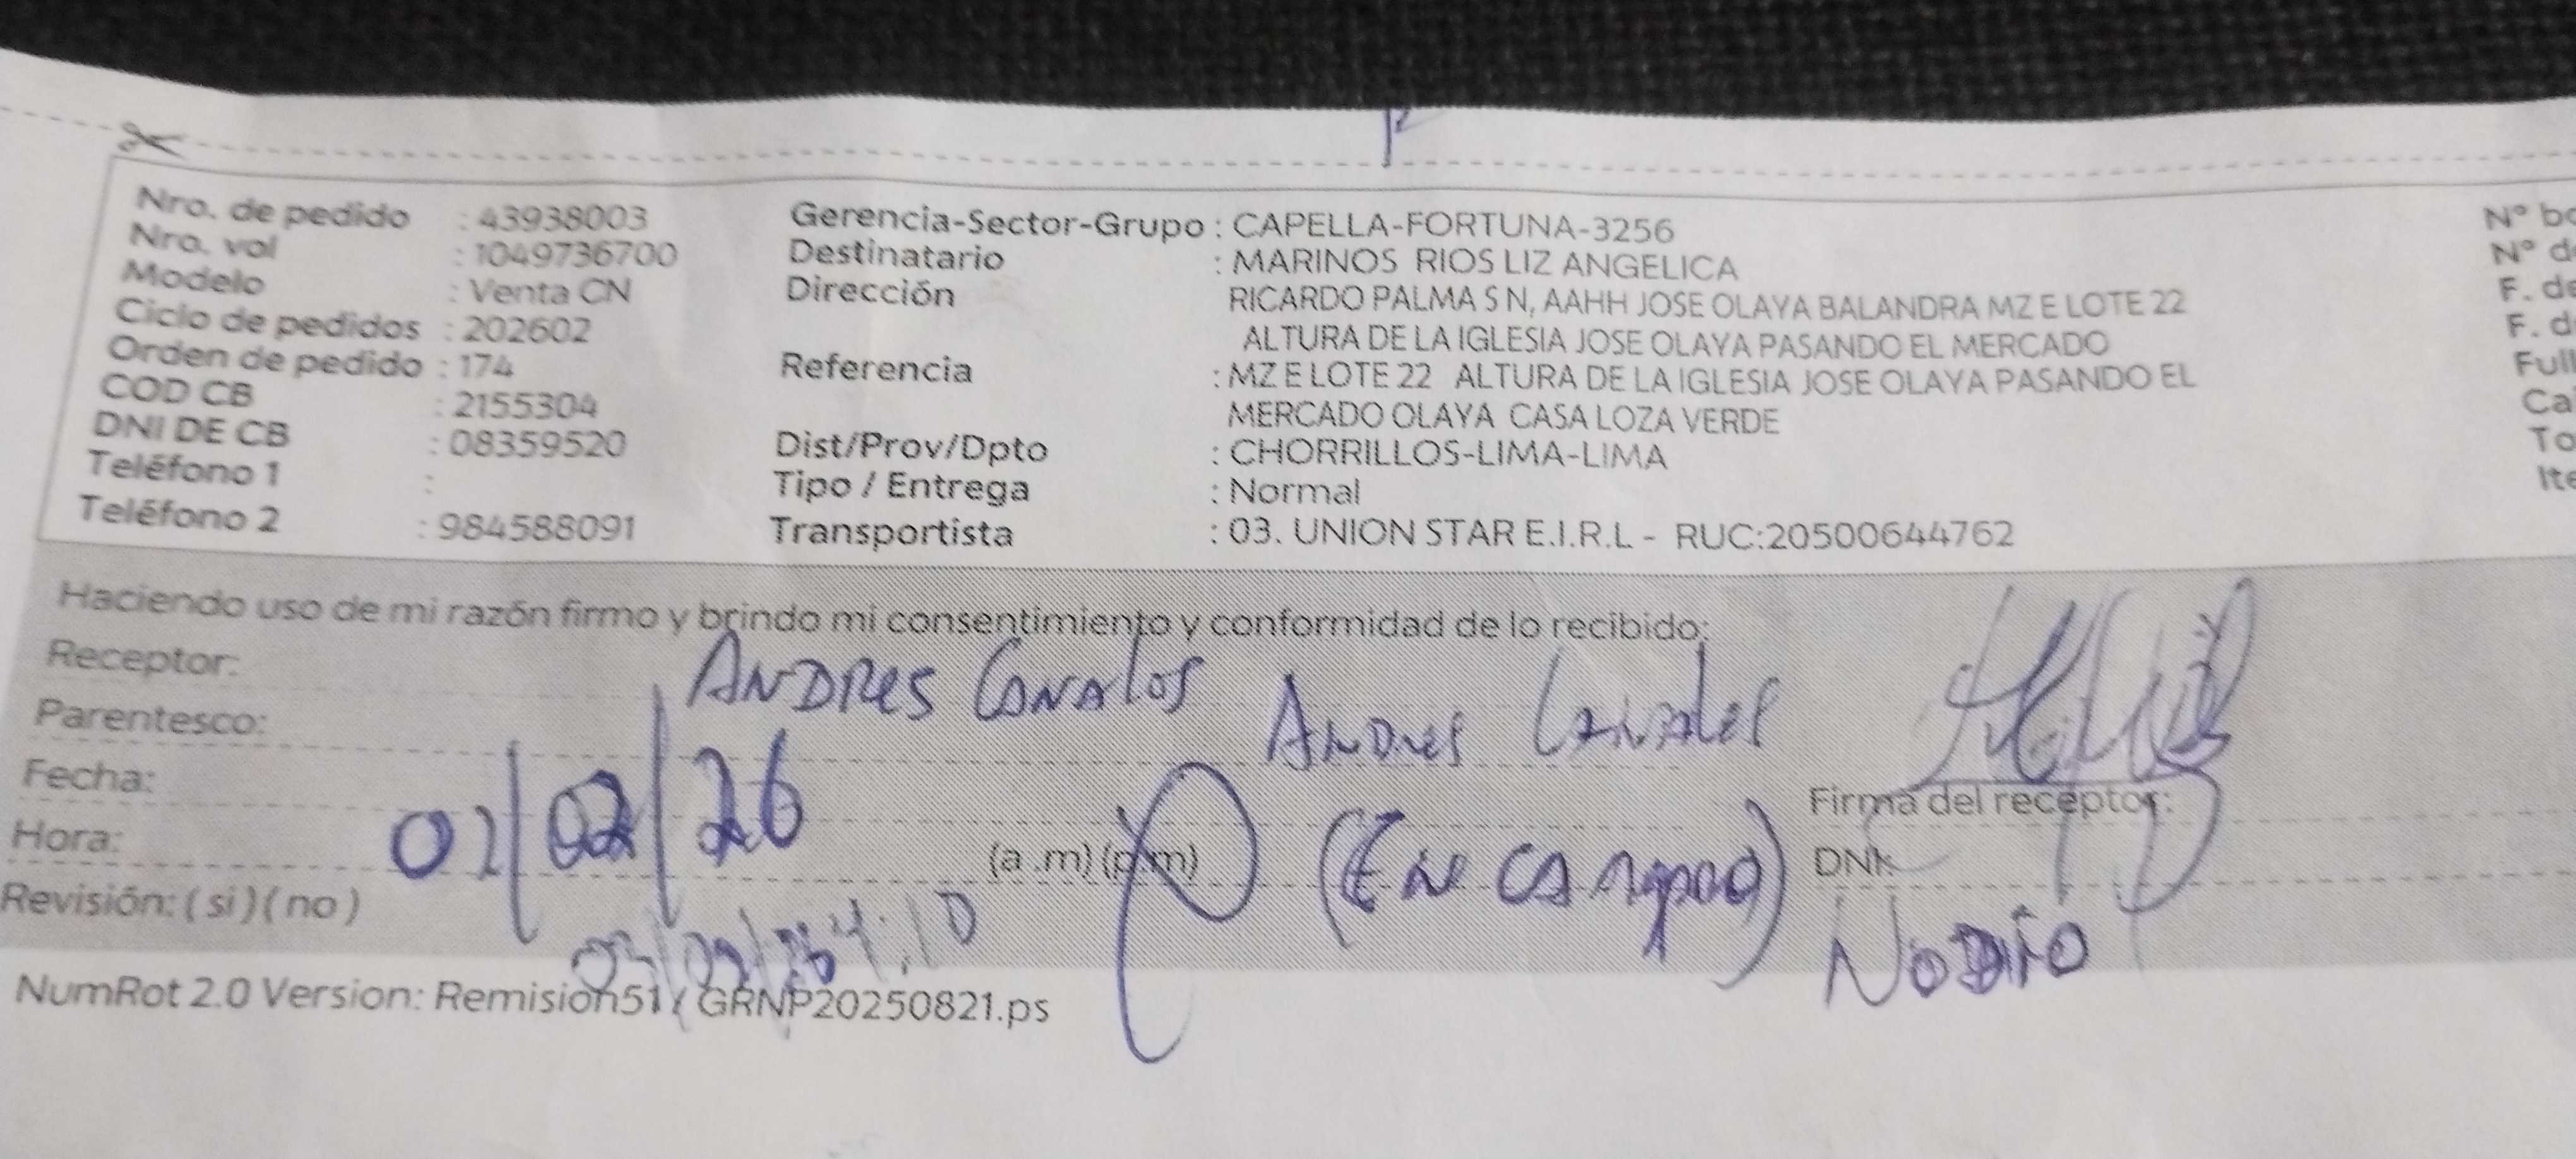 Nro. de pedido : 43938003
Nro. vol : 1049736700
Modelo : Venta CN
Ciclo de pedidos : 202602
Orden de pedido : 174
COD CB : 2155304
DNI DE CB : 08359520
Teléfono 1 :
Teléfono 2 : 984588091
Gerencia-Sector-Grupo : CAPELLA-FORTUNA-3256
Destinatario : MARINOS RIOS LIZ ANGELICA
Dirección RICARDO PALMA S N, AAHH JOSE OLAYA BALANDRA MZ E LOTE 22
ALTURA DE LA IGLESIA JOSE OLAYA PASANDO EL MERCADO
Referencia : MZ E LOTE 22 ALTURA DE LA IGLESIA JOSE OLAYA PASANDO EL
MERCADO OLAYA CASA LOZA VERDE
Dist/Prov/Dpto : CHORRILLOS-LIMA-LIMA
Tipo / Entrega : Normal
Transportista : 03. UNION STAR E.I.R.L - RUC:20500644762
Nº
Nº
F.
F.
Haciendo uso de mi razón firmo y brindo mi consentimiento y conformidad de lo recibido:
Receptor: ANDRES
Parentesco: ANDRES
Fecha: 02/02/26
Firma del receptor:
Hora: (a .m) (p.m)
DNI:
Revisión: ( si ) ( no )
NumRot 2.0 Version: Remision51 / GRNP20250821.ps